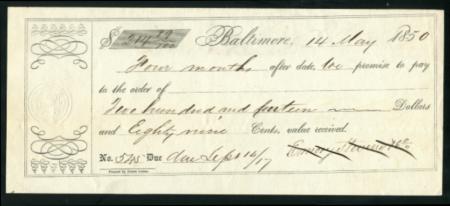 $ 214 89/100 Baltimore, 14 May 1850
Four months after date, We promise to pay
to the order of
Two hundred and fourteen Dollars
and Eighty nine Cents, value received.
No. 545 Due Sept 14/17